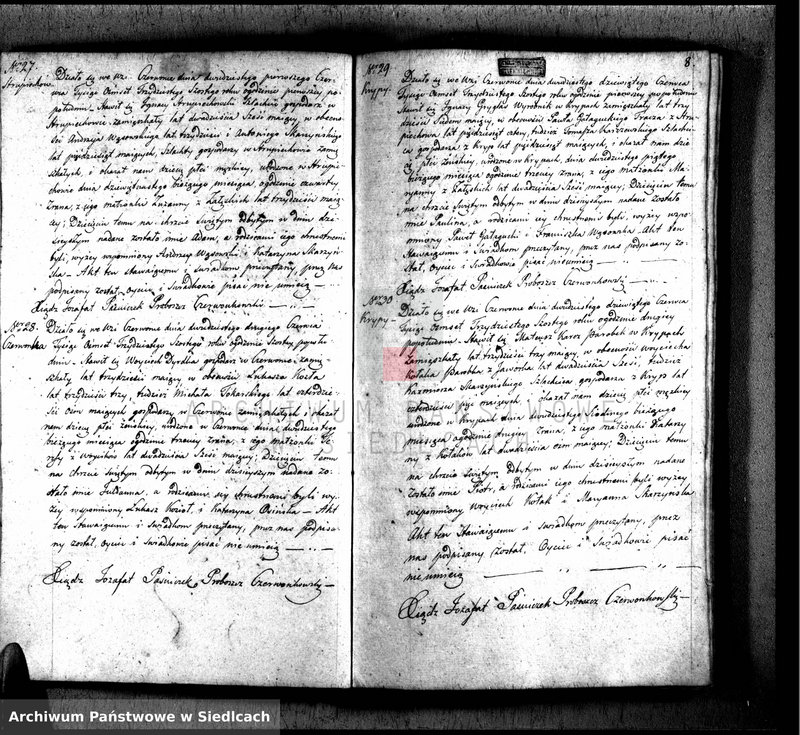 No 27.
Strupiechów
Działo się we wsi Czerwonce dnia dwudziestego pierwszego Czer-
wca Tysiąc Ośmset Trzydziestego Szóstego roku o godzinie pierwszej po
południu. Stawił się Ignacy Strupiechowski Szlachcic gospodarz w
Strupiechowie zamieszkały, lat dwadzieścia Sześć mający, w obecno-
ści Andrzeja Wąsowskiego lat trzydzieści i Antoniego Skarzyńskiego
lat pięćdziesiąt mających, Szlachty gospodarzy w Strupiechowie zamie-
szkałych, i okazał nam dziecię płci męzkiej, urodzone w Strupie-
chowie dnia dziewiętnastego bieżącego miesiąca, o godzinie czwartej
zrana, z jego małżonki Zuzanny z Załęskich lat trzydzieści mają-
cej; Dziecięciu temu na chrzcie Świętym odbytym w dniu dzi-
siejszym nadane zostało imie Adam, a rodzicami jego chrzestnemi
byli, wyżej wspomniony Andrzej Wąsowski i Katarzyna Skarzyń-
ska. — Akt ten stawającemu i świadkom przeczytany, przez nas
podpisany został, Ojciec i Świadkowie pisać nie umieją —
Xiądz Jozafat Paśniczek Proboszcz Czerwonkowski —
No 28.
Czerwonka
Działo się we wsi Czerwonce dnia dwudziestego drugiego Czerwca
Tysiąc Ośmset Trzydziestego Szóstego roku o godzinie Szóstej popołu-
dniu. — Stawił się Wojciech Dyrdła gospodarz w Czerwonce zamie-
szkały lat trzydzieści mający w obecności Łukasza Kozła
lat trzydzieści trzy, tudzież Michała Tokarskiego lat czterdzie-
ści ośm mających gospodarzy w Czerwonce zamieszkałych i okazał
nam dziecię płci żeńskiej, urodzone w Czerwonce dnia dwudziestego
bieżącego miesiąca o godzinie trzeciej zrana, z jego małżonki
z Wojcików lat dwadzieścia Sześć mającej; Dziecięciu temu
na chrzcie świętym odbytym w dniu dzisiejszym nadane zo-
stało imie Julianna, a rodzicami jej chrzestnemi byli wy-
żej wspomniony Łukasz Kozioł, i Katarzyna Osińska — Akt
ten Stawającemu i świadkom przeczytany, przez nas podpisa-
ny został, Ojciec i świadkowie pisać nie umieją —
Xiądz Jozafat Paśniczek Proboszcz Czerwonkowski —
8
No 29
Krypy
Działo się we wsi Czerwonce dnia dwudziestego dziewiątego Czerwca
Tysiąc Ośmset Trzydziestego Szóstego roku o godzinie pierwszej popołudniu
Stawił się Ignacy Gryglas Wyrobnik w Krypach zamieszkały lat trzy-
dzieści Siedem mający, w obecności Pawła Gałaguckiego Tracza z Stru-
piechowa lat pięćdziesiąt cztery, tudzież Tomasza Karszewskiego Szlachci-
ca gospodarza z Kryp lat pięćdziesiąt mających, i okazał nam dzie-
cię płci żeńskiej, urodzone w Krypach, dnia dwudziestego piątego
bieżącego miesiąca o godzinie trzeciej zrana, z jego małżonki Ma-
ryanny z Załęskich lat dwadzieścia Sześć mającej; Dziecięciu temu
na chrzcie Świętym odbytym w dniu dzisiejszym nadane zostało
imie Paulina, a rodzicami jej chrzestnemi byli, wyżej wspo-
mniony Paweł Gałagucki i Franciszka Wąsowska. Akt ten
Stawającemu i Świadkom przeczytany, przez nas podpisany zo-
stał, Ojciec i Świadkowie pisać nie umieją —
Xiądz Jozafat Paśniczek Proboszcz Czerwonkowski —
No 30
Krypy
Działo się we wsi Czerwonce dnia dwudziestego dziewiątego Czerwca
Tysiąc Ośmset Trzydziestego Szóstego roku o godzinie drugiej
popołudniu. Stawił się Mateusz Karor Parobek w Krypach
Zamieszkały lat trzydzieści trzy mający, w obecności Wojciecha
Kołaka Parobka z Jaworka lat dwadzieścia Sześć, tudzież
Kazimierza Skarzyńskiego Szlachcica gospodarza z Kryp lat
czterdzieści pięć mających, i okazał nam dziecię płci męzkiej
urodzone w Krypach dnia dwudziestego Siódmego bieżącego
miesiąca o godzinie drugiej zrana, z jego małżonki Katarzy-
ny z Kołaków lat dwadzieścia ośm mającej; Dziecięciu temu
na chrzcie Świętym odbytym w dniu dzisiejszym nadane
zostało imie Piotr, a rodzicami jego chrzestnemi byli wyżej
wspomniony Wojciech Kołak i Maryanna Skarzyńska
Akt ten Stawającemu i świadkom przeczytany, przez
nas podpisany został, Ojciec i Świadkowie pisać
nie umieją —
Xiądz Jozafat Paśniczek Proboszcz Czerwonkowski —
Archiwum Państwowe w Siedlcach